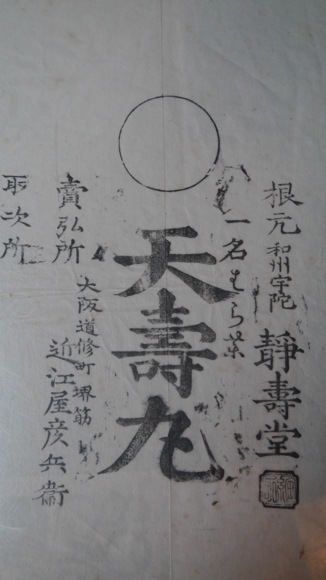 根元 和州宇陀 靜壽堂
一名はら薬
天壽丸
大阪道修町堺筋
賣弘所 近江屋彦兵衛
取次所